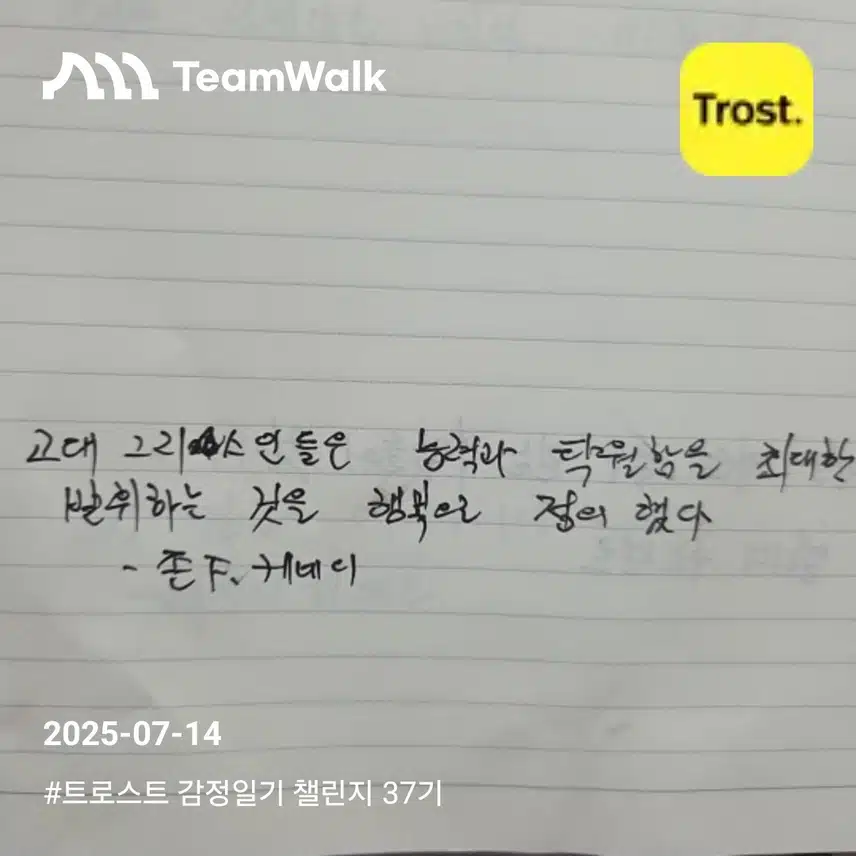 TeamWalk
Trost.
고대 그리스인들은 능력과 탁월함을 최대한
발휘하는 것을 행복으로 정의 했다
- 존 F. 케네디
2025-07-14
#트로스트 감정일기 챌린지 37기